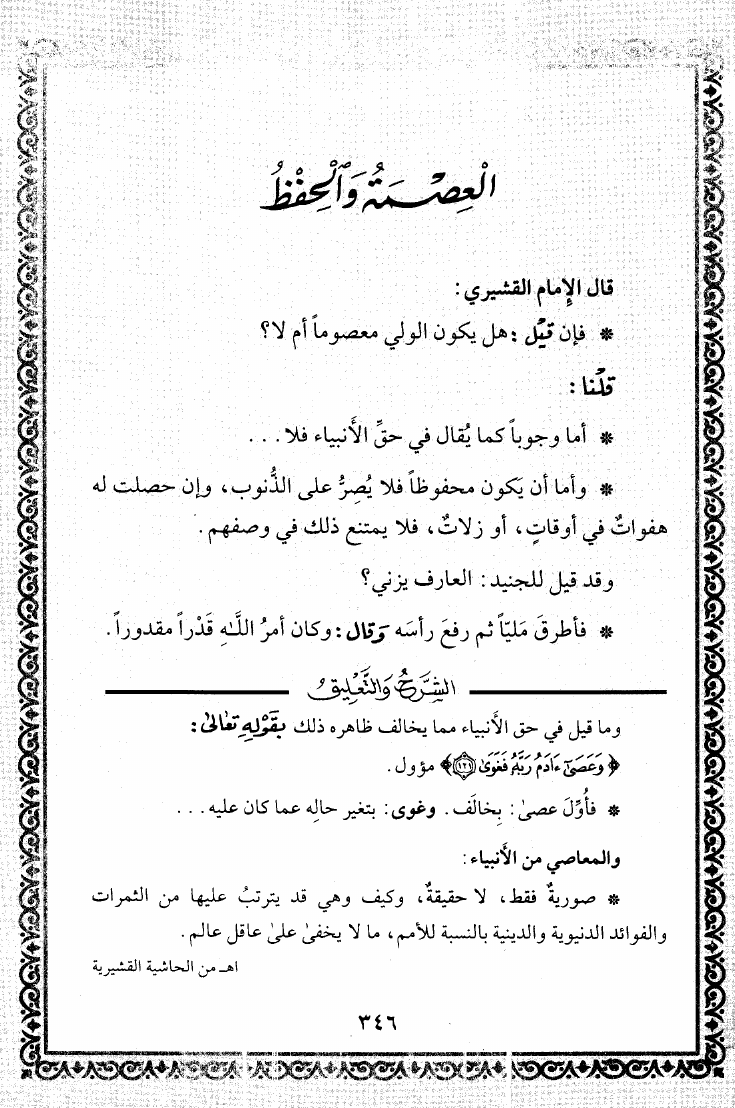 الْعِصْمَةُ وَالْحِفْظُ
قال الإمام القشيري:
* فإن قيل: هل يكون الولي معصوماً أم لا؟
قلنا:
* أما وجوباً كما يُقال في حقِّ الأنبياء فلا...
* وأما أن يكون محفوظاً فلا يُصِرُّ على الذُّنوب، وإن حصلت له
هفواتٌ في أوقاتٍ، أو زلاتٌ، فلا يمتنع ذلك في وصفهم.
وقد قيل للجنيد: العارف يزني؟
* فأطرقَ مَليّاً ثم رفعَ رأسَه وَقال: وكان أمرُ اللَّـهِ قَدْراً مقدوراً.
الشَّرْحُ وَالتَّعْلِيقُ
وما قيل في حق الأنبياء مما يخالف ظاهره ذلك بقَوْلِهِ تعَالىٰ:
﴿ وَعَصَىٰٓ ءَادَمُ رَبَّهُۥ فَغَوَىٰ ١٢١ ﴾ مؤول.
* فأُوِّلَ عصىٰ: بِخالَف. وغوى: بتغير حالِه عما كان عليه...
والمعاصي من الأنبياء:
* صوريةٌ فقط، لا حقيقةٌ، وكيف وهي قد يترتبُ عليها من الثمرات
والفوائد الدنيوية والدينية بالنسبة للأمم، ما لا يخفىٰ علىٰ عاقل عالم.
اهـ من الحاشية القشيرية
٣٤٦